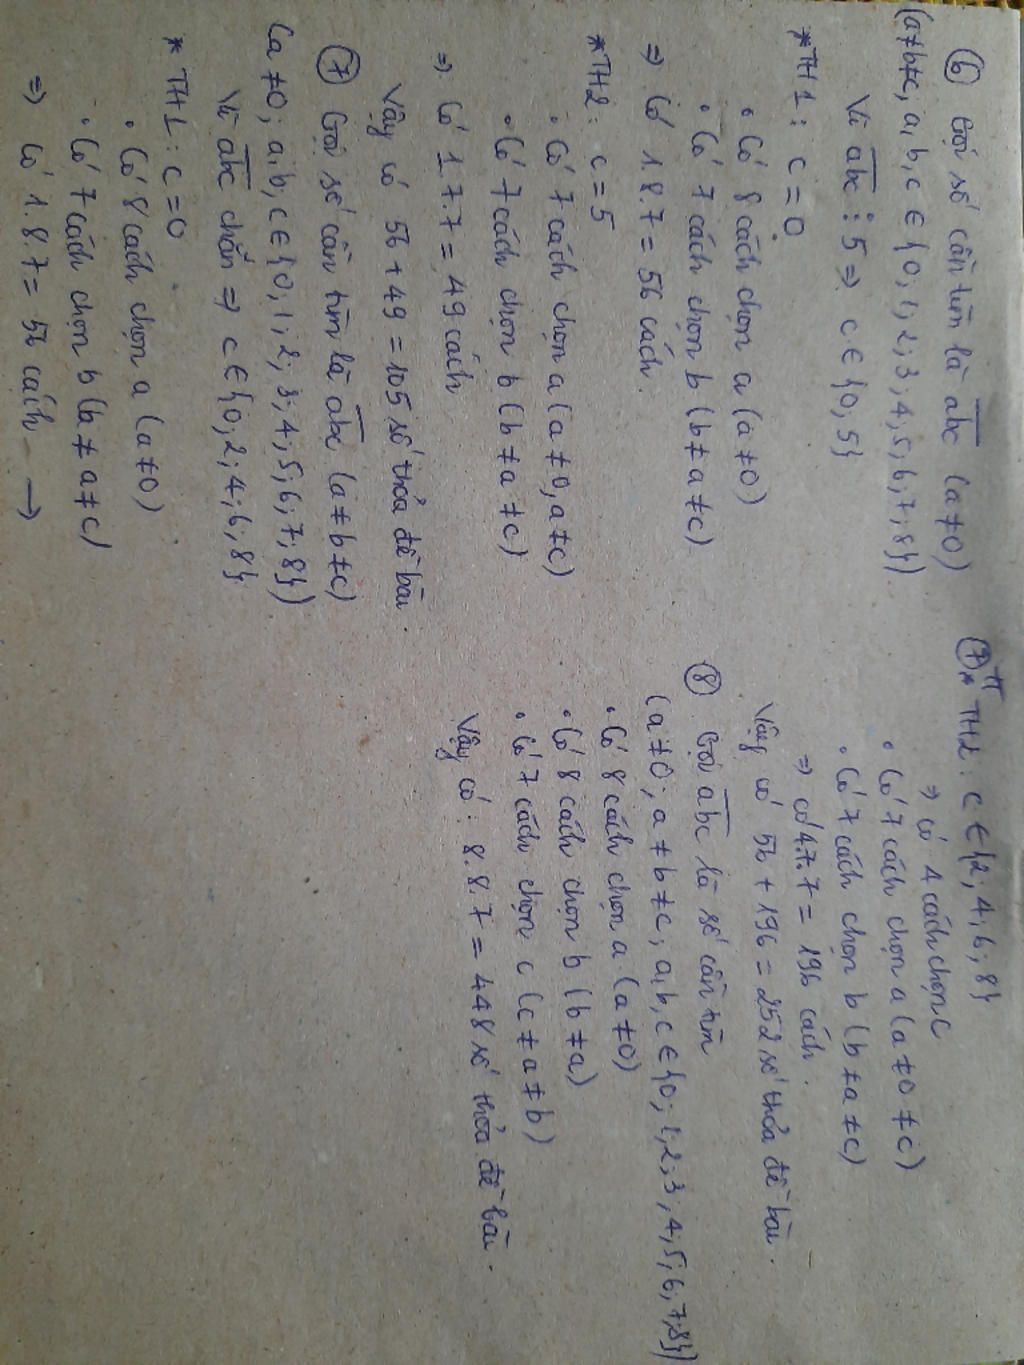 ⑥ Gọi số cần tìm là abc (a≠0)
(a≠b≠c, a, b, c ∈ {0; 1; 2; 3; 4; 5; 6; 7; 8})
Vì abc ⋮ 5 ⇒ c ∈ {0, 5}
* TH1: c = 0
• Có 8 cách chọn a (a ≠0)
• Có 7 cách chọn b (b ≠ a ≠c)
⇒ Có 1.8.7 = 56 cách.
* TH2: c = 5
• Có 7 cách chọn a (a ≠ 0, a ≠c)
• Có 7 cách chọn b (b ≠ a ≠c)
⇒ Có 1.7.7 = 49 cách
Vậy có 56 + 49 = 105 số thỏa đề bài.
⑦ Gọi số cần tìm là abc (a ≠ b ≠c)
(a ≠0; a, b, c ∈ {0; 1; 2; 3; 4; 5; 6; 7; 8})
Vì abc chẵn ⇒ c ∈ {0; 2; 4; 6; 8}
* TH1: c = 0
• Có 8 cách chọn a (a ≠0)
• Có 7 cách chọn b (b ≠ a ≠ c)
⇒ Có 1.8.7 = 56 cách →
⑦ * TH2: c ∈ {2; 4; 6; 8}
⇒ có 4 cách chọn c
• Có 7 cách chọn a (a ≠0 ≠ c)
• Có 7 cách chọn b (b ≠ a ≠ c)
⇒ có 4.7.7 = 196 cách.
Vậy có 56 + 196 = 252 số thỏa đề bài.
⑧ Gọi abc là số cần tìm
(a ≠0; a ≠ b ≠c; a, b, c ∈ {0; 1; 2; 3; 4; 5; 6; 7; 8})
• Có 8 cách chọn a (a ≠0)
• Có 8 cách chọn b (b ≠a)
• Có 7 cách chọn c (c ≠ a ≠ b)
Vậy có: 8.8.7 = 448 số thỏa đề bài.